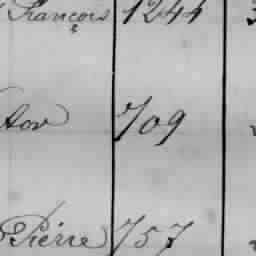 François 1244
tor 709
Pierre 757